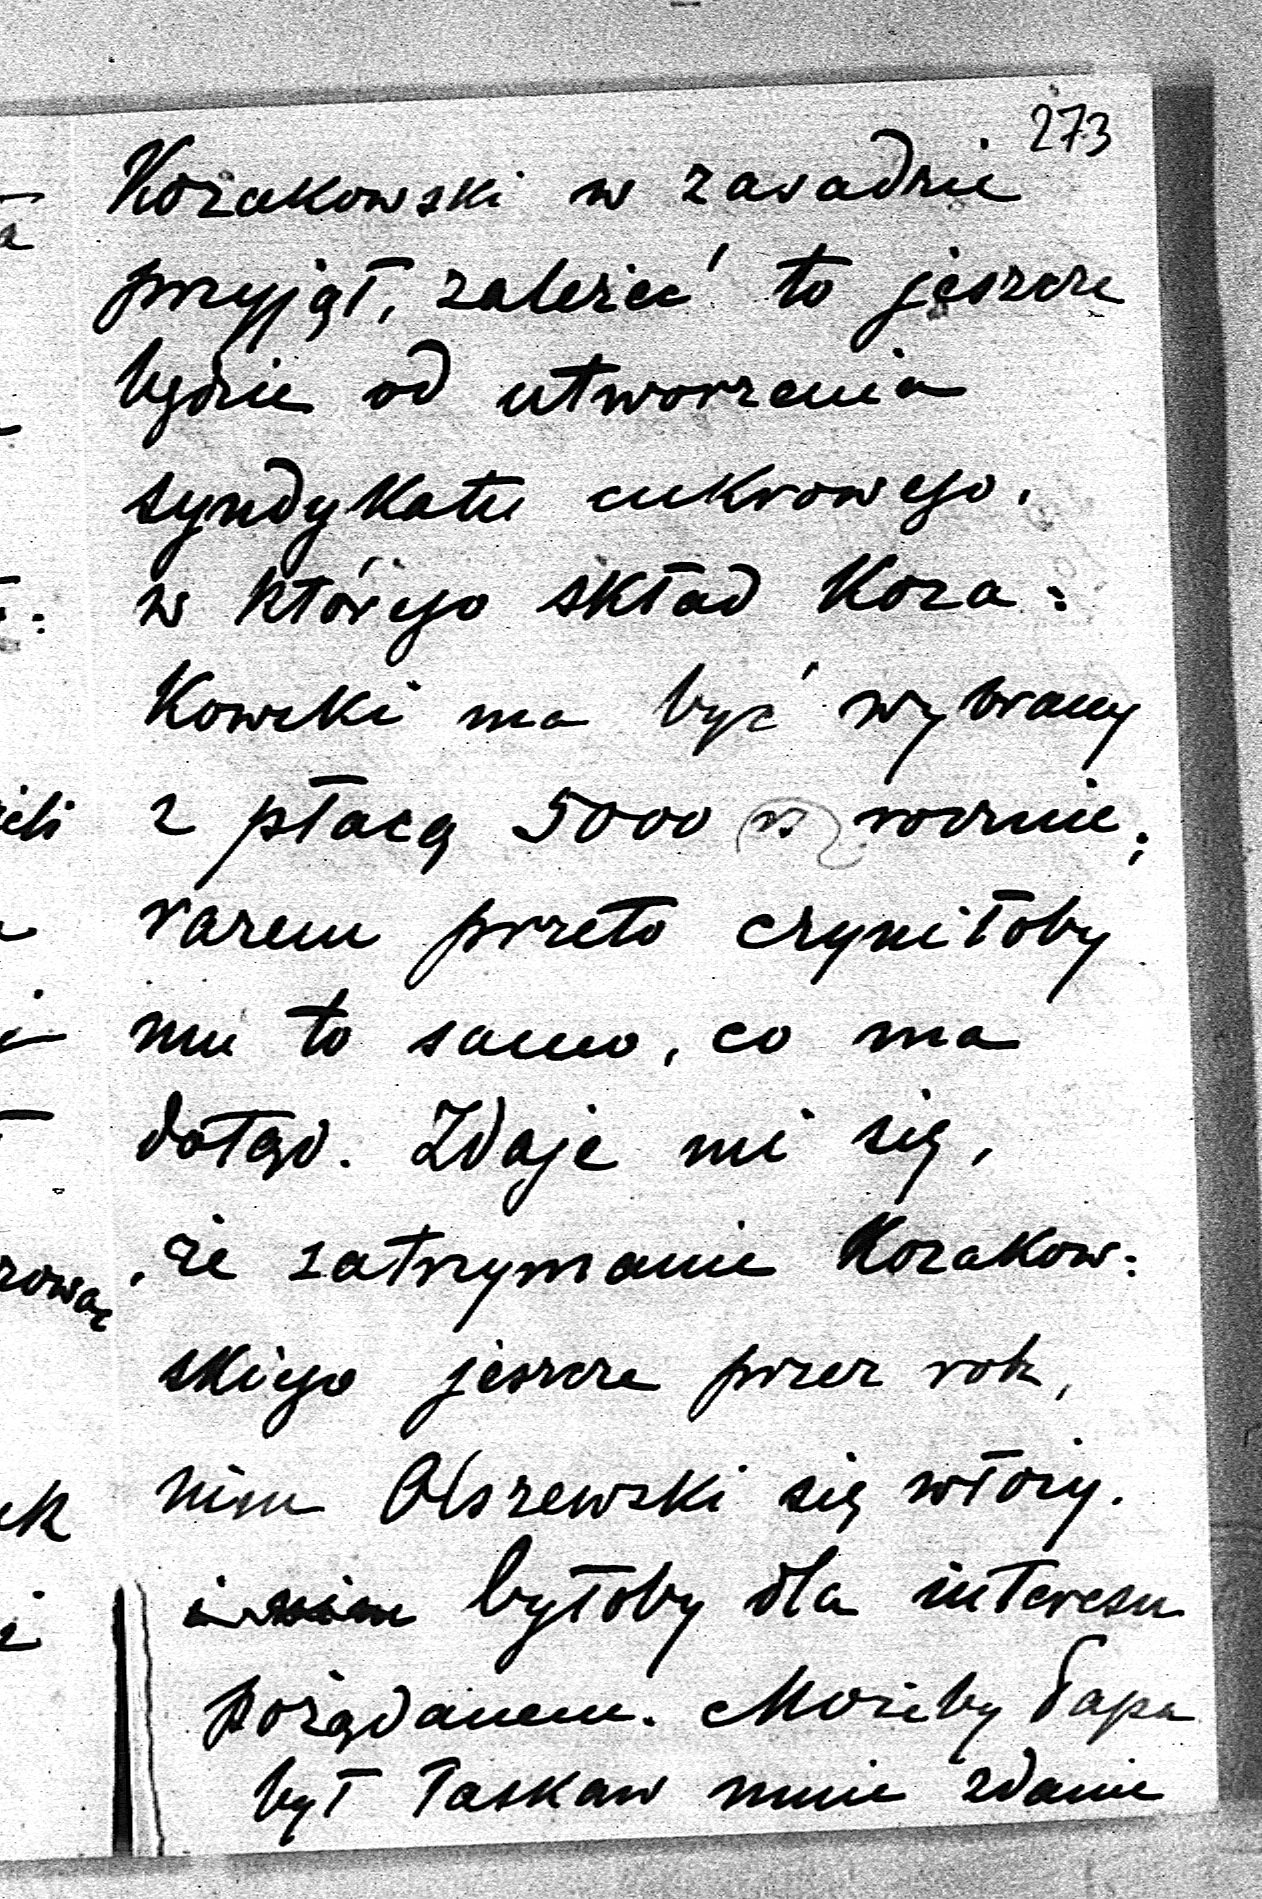 273
Kozakowski w zasadzie
przyjął, zależeć to jeszcze
będzie od utworzenia
syndykatu cukrowego,
w którego skład Koza:
kowski ma być wybrany
z płacą 5000 rs rocznie;
razem przeto czyniłoby
mu to samo, co ma
dotąd. Zdaje mi się,
że zatrzymanie Kozakow:
skiego jeszcze przez rok,
nim Olszewski się włoży.
byłoby dla interesu
pożądanem. Możeby Papa
był łaskaw mnie zdanie